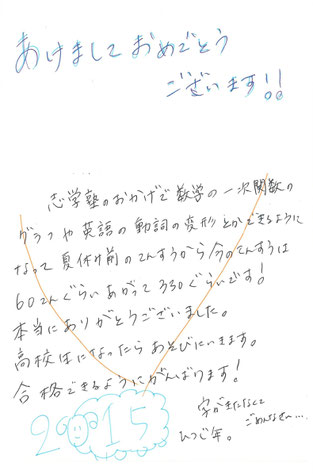 あけましておめでとう
ございます!!
志学塾のおかげで数学の一次関数の
グラフや英語の動詞の変形とかできるように
なって夏休み前のてんすうから今のてんすうは
60てんぐらいあがって330ぐらいです!
本当にありがとうございました。
高校生になったらあそびにいきます。
合格できるようにがんばります!
2015
ひつじ年。
字がきたなくて
ごめんなさい…